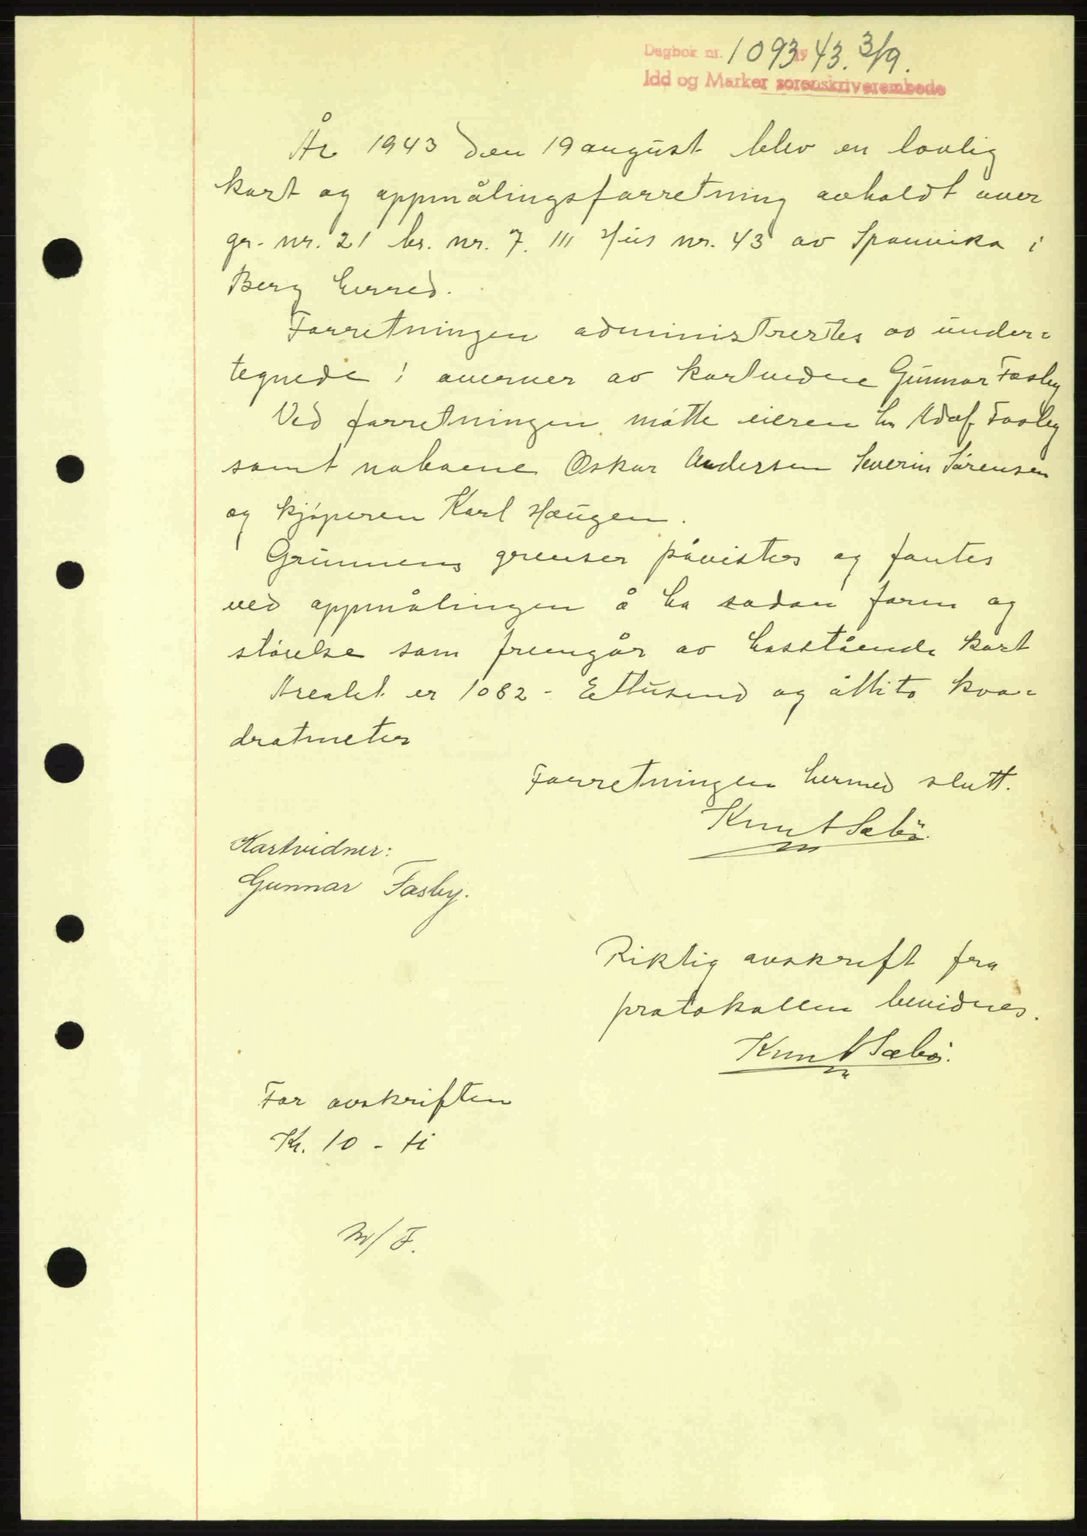 Dagbok nr. 1093 19 43. 3/9.
Idd og Marker sorenskriverembede
År 1943 den 19 august blev en lovlig
kart og oppmålingsforretning avholdt over
gr. nr. 21 br. nr. 7. III Hus nr. 43 av Sponvika i
Berg herred.
Forretningen administrertes av under-
tegnede i overvær av kartvidne Gunnar Fasby
Ved forretningen møtte eieren hr Adolf Fasby
samt naboene Oskar Andersen Severin Sørensen
og kjøperen Karl Haugen.
Grunnens grenser påvistes og fantes
ved oppmålingen å ha sådan form og
størelse som fremgår av hosstående kart
Arealet er 1082 - Ettusend og åttito kva-
dratmeter
Forretningen hermed slutt.
Knut Sæbö.
Kartvidner:
Gunnar Fasby.
Riktig avskrift fra
protokollen bevidnes.
Knut Sæbö.
For avskriften
Kr. 10 - ti